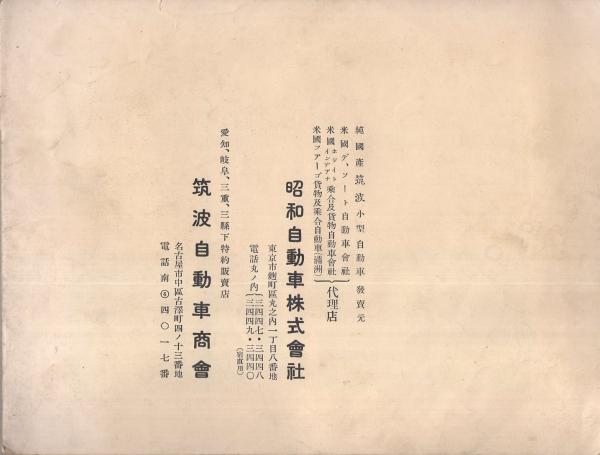 純國產筑波小型自動車發賣元
米國デ、ソート自動車會社
米國ホワイト インデアナ乘合及貨物自動車會社
米國フアーゴ貨物及乘合自動車(滿洲)
代理店
昭和自動車株式會社
東京市麴町區丸之內一丁目八番地
電話丸ノ內(三四四七・三四四八
三四四九・三四四〇
(宿直用)
愛知、岐阜、三重、三縣下特約販賣店
筑波自動車商會
名古屋市中區古澤町四ノ十三番地
電話南⑥四〇一七番